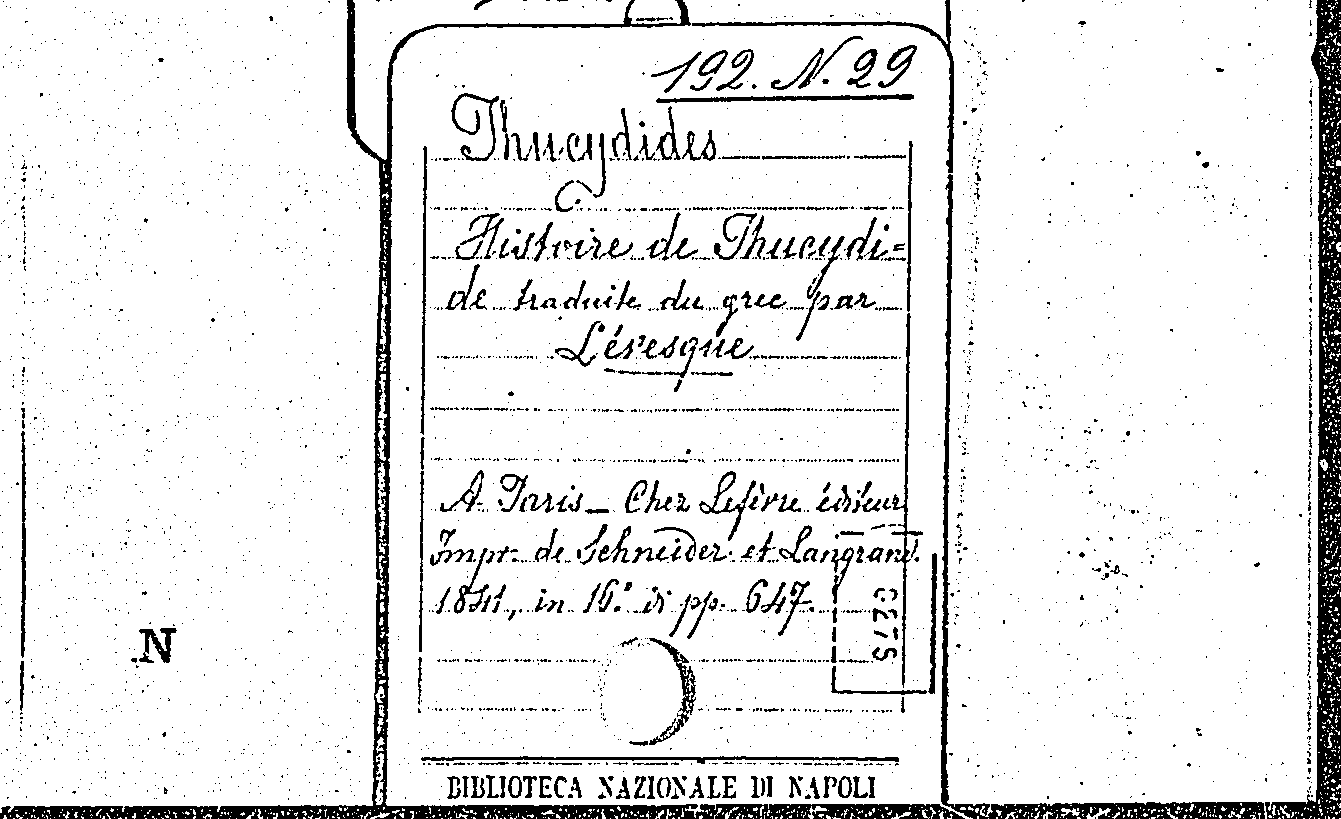 192. N. 29
Thucydides
Histoire de Thucydi=
de traduite du grec par
Lévesque
A Paris_ Chez Lefèvre éditeur
Impr. de Schneider et Langrand.
1841, in 16.° di pp. 647.
N
BIBLIOTECA NAZIONALE DI NAPOLI